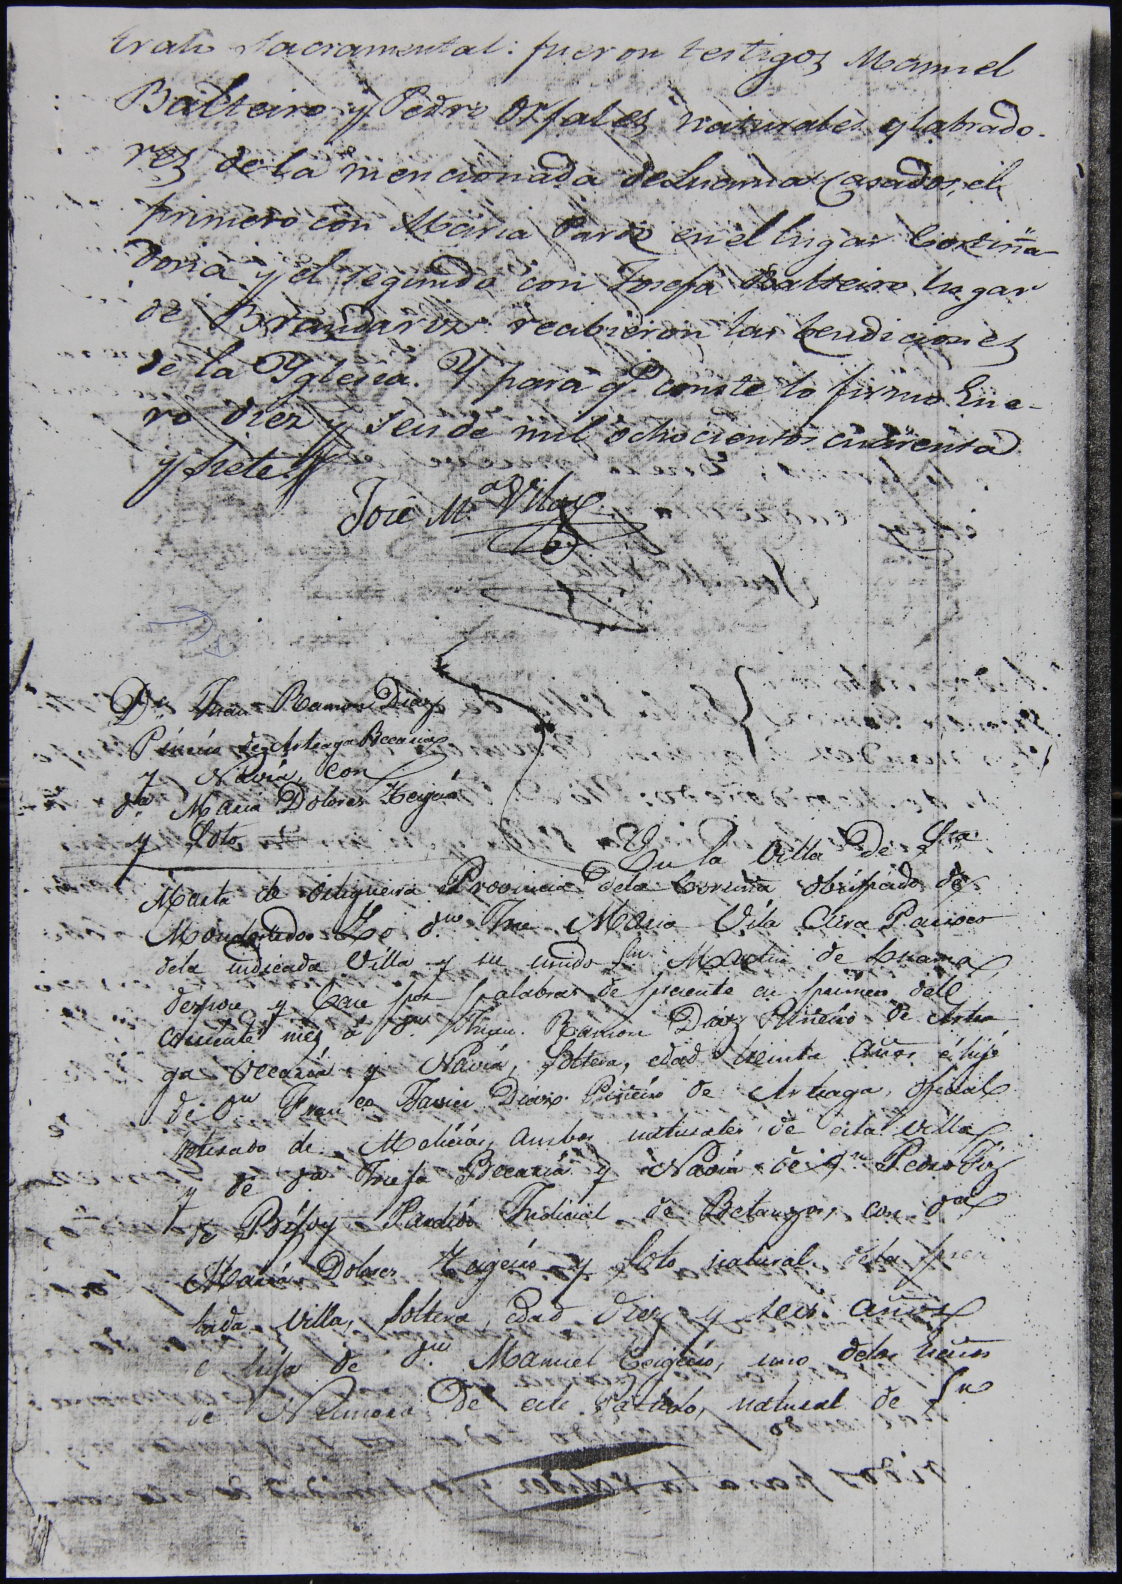 trato Sacramental: fueron testigos Manuel
Balteiro y Pedro Orjales naturales y labrado-
res de la mencionada de Luama Casados, el
primero con Maria Pardo en el lugar Cortiña
doria y el segundo con Josefa Balteiro lugar
de recibieron las bendiciones
de la Yglesia. Y para qe. conste lo firmo Ene-
ro diez y seis de mil ochocientos cuarenta
y siete
José Ma. Vila
Dn. Juan Ramon Diaz
Piñeiro de Arteaga Becaria
y Navia, con
Da. Maria Dolores Teigeiro
y Soto
En la Villa de Sta.
Marta de Ortigueira Provincia dela Coruña obispado de
Mondoñedo Yo Dn. Jose Maria Vila Cura Parroco
dela indicada Villa y su unido Sn. Martin de Luama
despose y Case por palabras de presente en primero del
corriente mes á Dn. Juan Ramon Diaz Piñeiro de Artea
ga Becaria y Navia, Soltero, edad treinta años é hijo
de Dn. Franco. Javier Diaz Piñeiro de Arteaga, oficial
retirado de Milicias, ambos naturales de esta Villa
y de Da. Josefa Becaria y Navia de Sn. Pedro Fiz
Partido Judicial de Betanzos, con Da.
Maria Dolores Teigeiro y Soto natural dela pren
tada Villa, Soltera, edad diez y seis años
e hija de Dn. Manuel Teigeiro, uno delos
de de este Partido, natural de Sn.